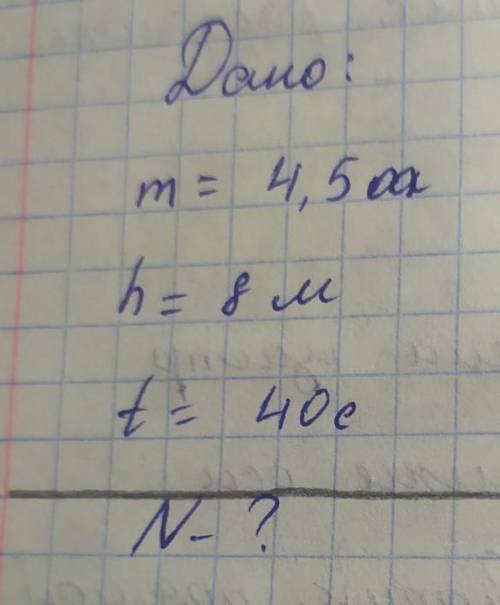 Дано:
m = 4,5
h = 8 м
t = 40с
N - ?